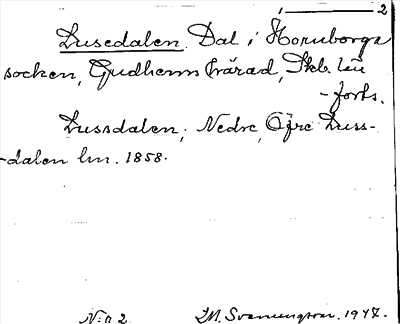 1 — 2
Lusedalen Dal i Hornborga
socken, Gudhems härad, Skb. län
- forts.
Lussdalen, Nedre, Öfre Luss-
-dalen lm. 1858.
N:o 2 I.M. Svenungsson. 1947.